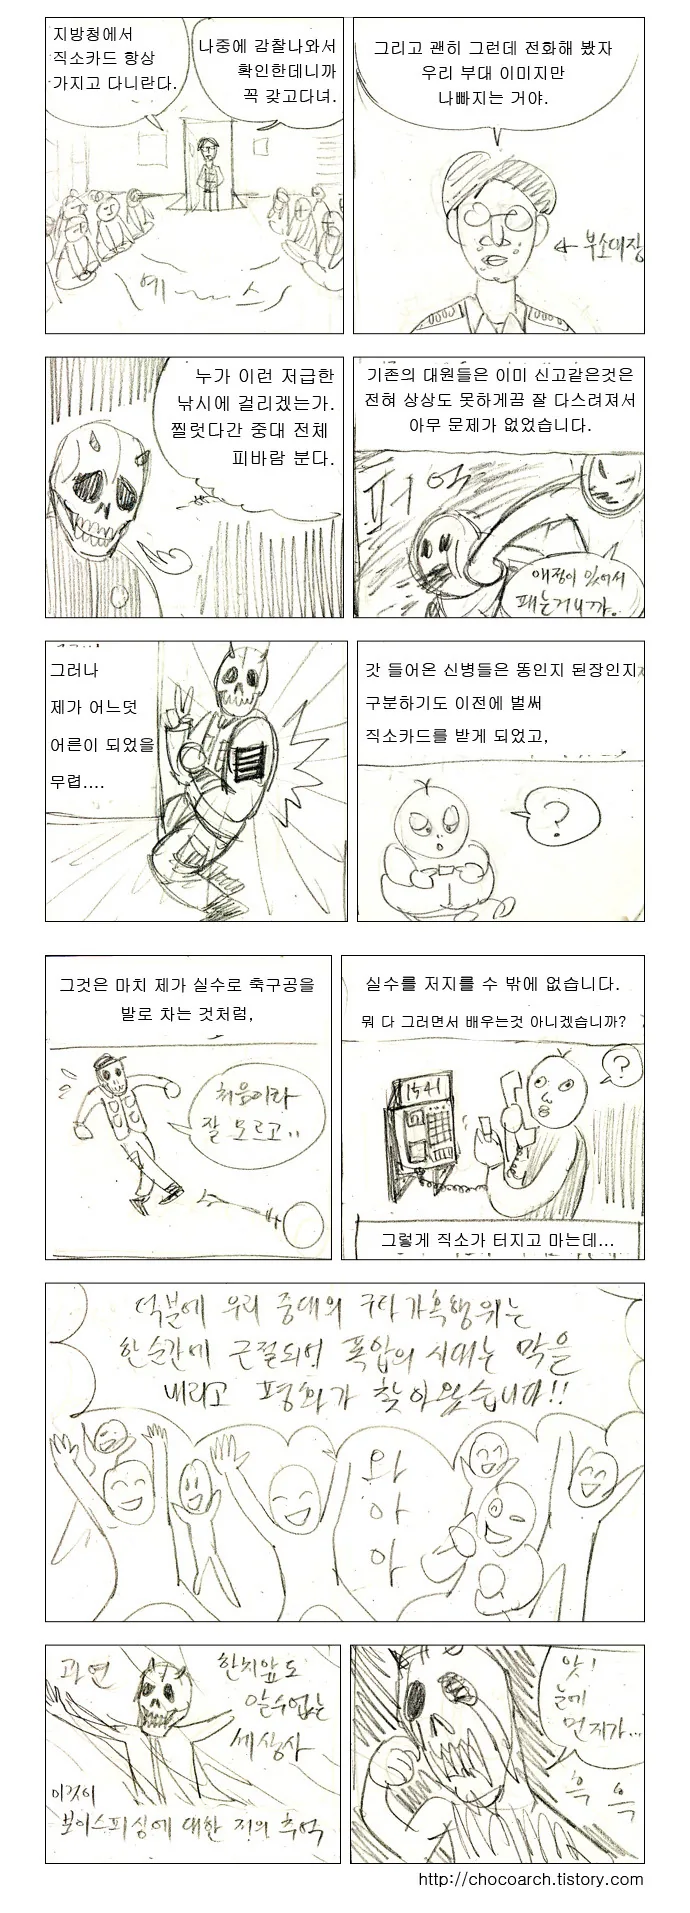 지방청에서
직소카드 항상
가지고 다니란다.
나중에 감찰나와서
확인한데니까
꼭 갖고다녀.
예~스
그리고 괜히 그런데 전화해 봤자
우리 부대 이미지만
나빠지는 거야.
부소대장
누가 이런 저급한
낚시에 걸리겠는가.
찔럿다간 중대 전체
피바람 분다.
기존의 대원들은 이미 신고같은것은
전혀 상상도 못하게끔 잘 다스려져서
아무 문제가 없었습니다.
퍼억
애정이 있어서
패는거니까.
그러나
제가 어느덧
어른이 되었을
무렵....
갓 들어온 신병들은 똥인지 된장인지
구분하기도 이전에 벌써
직소카드를 받게 되었고,
?
그것은 마치 제가 실수로 축구공을
발로 차는 것처럼,
처음이라
잘 모르고..
실수를 저지를 수 밖에 없습니다.
뭐 다 그러면서 배우는것 아니겠습니까?
?
1541
그렇게 직소가 터지고 마는데...
덕분에 우리 중대의 구타가혹행위는
한순간에 근절되어 폭압의 시대는 막을
내리고 평화가 찾아왔습니다!!
와
아
아
과연
한치앞도
알수없는
세상사
이것이
보이스피싱에 대한 저의 추억
앗!
눈에
먼지가...
흑 흑
http://chocoarch.tistory.com